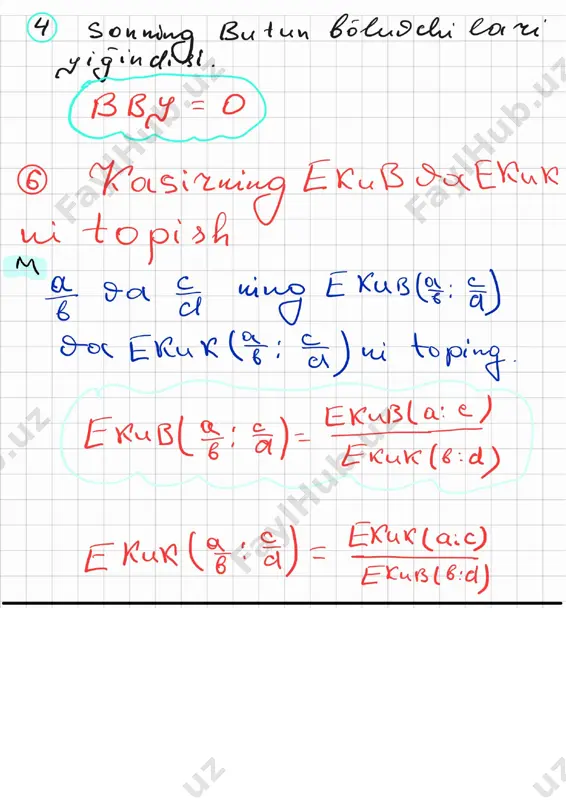 ④ Sonning Butun bo'luvchilari
yiğindisi.
BBY = 0
⑥ Kasirning EKUB va EKUK
ni topish
M
a/b va c/d ning EKUB(a/b : c/d)
va EKUK(a/b : c/d) ni toping.
EKUB(a/b : c/d) = EKUB(a:c) / EKUK(b:d)
EKUK(a/b : c/d) = EKUK(a:c) / EKUB(b:d)
FaylHub.uz
FaylHub.uz
FaylHub.uz
FaylHub.uz
uz
uz